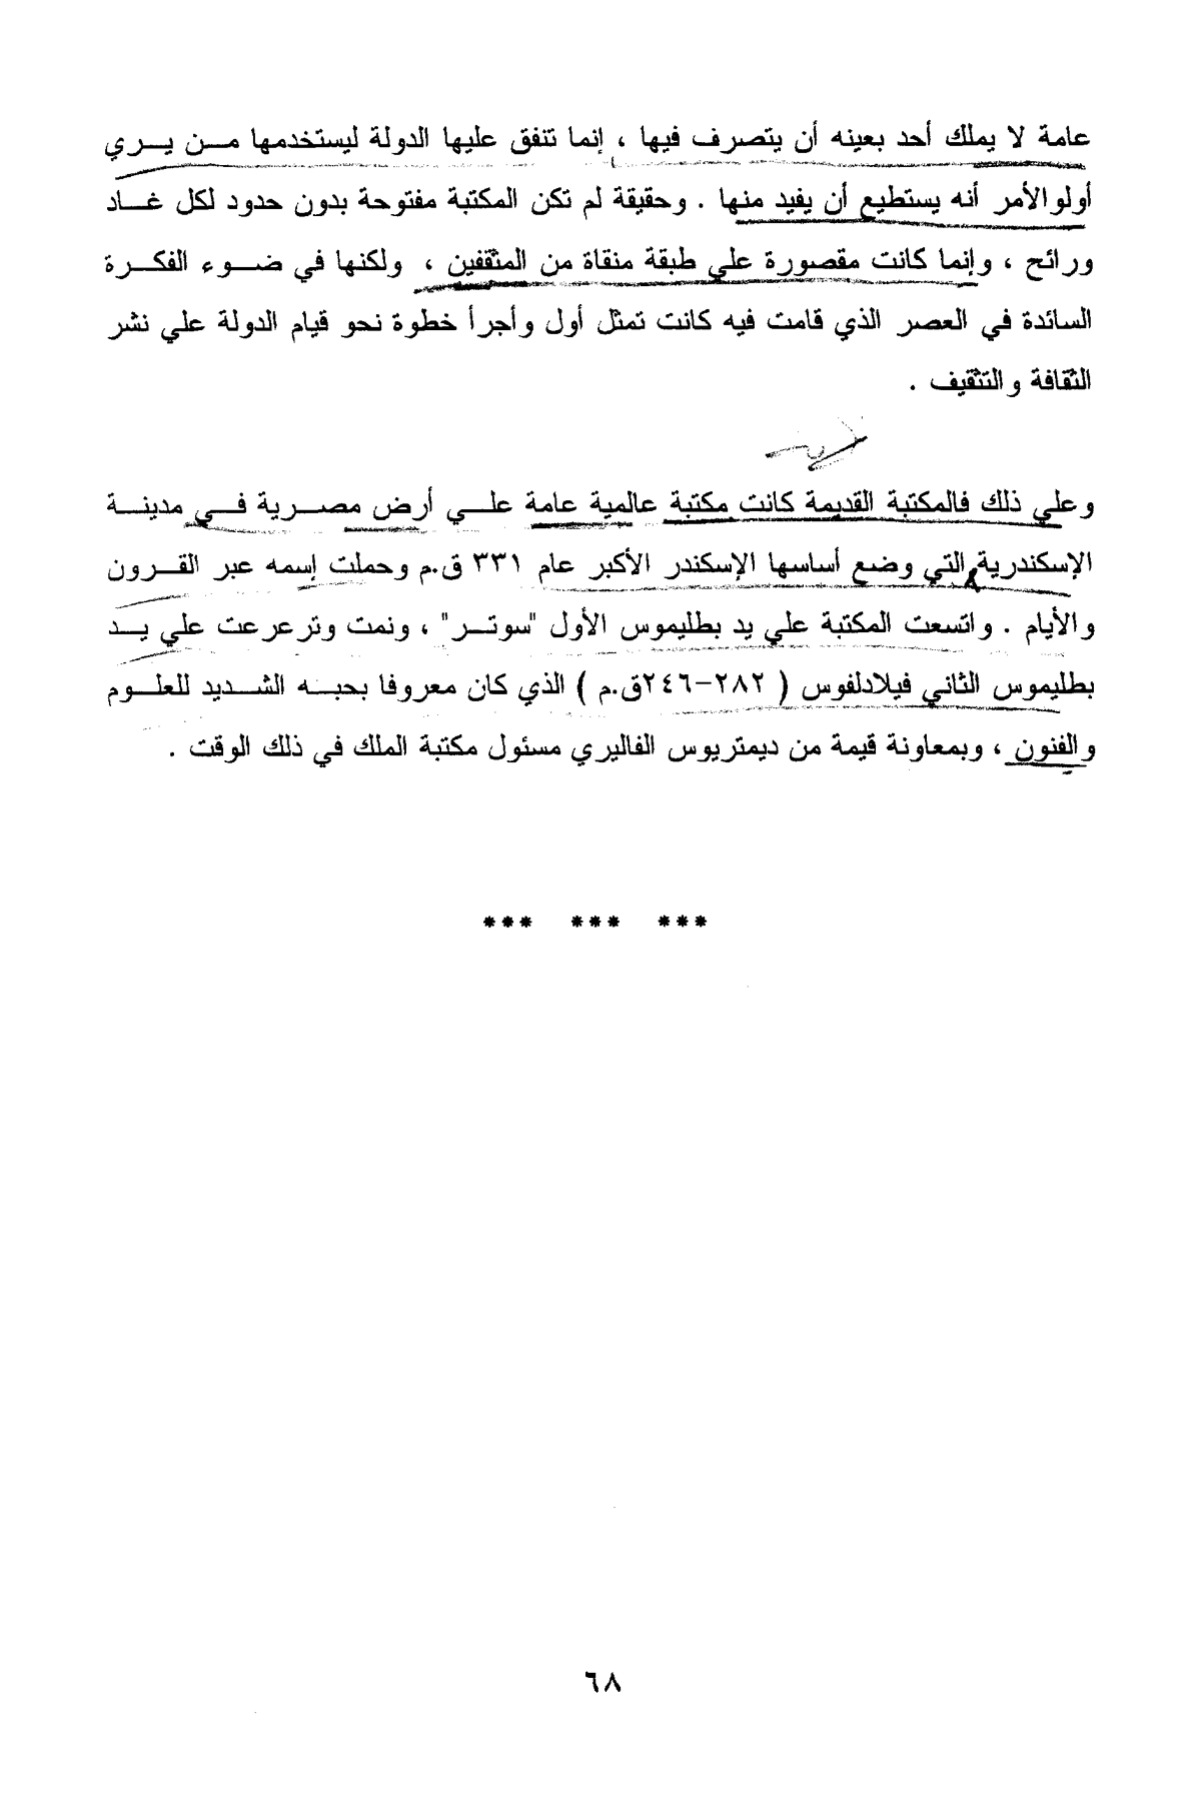 عامة لا يملك أحد بعينه أن يتصرف فيها ، إنما تنفق عليها الدولة ليستخدمها مـن يـري
أولو الأمر أنه يستطيع أن يفيد منها . وحقيقة لم تكن المكتبة مفتوحة بدون حدود لكل غـاد
ورائح ، وإنما كانت مقصورة علي طبقة منقاة من المثقفين ، ولكنها في ضـوء الفكـرة
السائدة في العصر الذي قامت فيه كانت تمثل أول وأجرأ خطوة نحو قيام الدولة علي نشر
الثقافة والتثقيف .
وعلي ذلك فالمكتبة القديمة كانت مكتبة عالمية عامة علـي أرض مصـرية فـي مدينـة
الإسكندرية التي وضع أساسها الإسكندر الأكبر عام ٣٣١ ق.م وحملت إسمه عبر القـرون
والأيام . واتسعت المكتبة علي يد بطليموس الأول "سوتـر" ، ونمت وترعرعت علي يـد
بطليموس الثاني فيلادلفوس ( ٢٨٢-٢٤٦ق.م ) الذي كان معروفا بحبـه الشـديد للعلـوم
والفنون ، وبمعاونة قيمة من ديمتريوس الفاليري مسئول مكتبة الملك في ذلك الوقت .
*** *** ***
٦٨